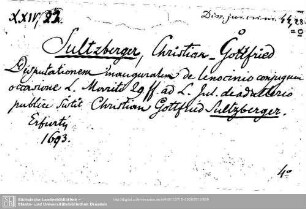 XXIV, 22.
Diss. jur. crim. 44, 28.
Sultzberger, Christian Gottfried
Disputationem inauguralem de lenocinio conjugum
occasione L. Mariti 29 ff. ad L. Jul. de adulterio
publice sistit Christian Gottfried Sultzberger.
Erfurti,
1693.
4°
Sächsische Landesbibliothek -
Staats- und Universitätsbibliothek Dresden